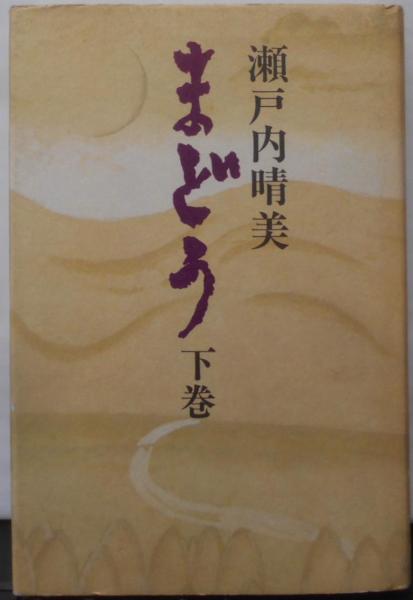 瀬戸内晴美
まどう
下巻